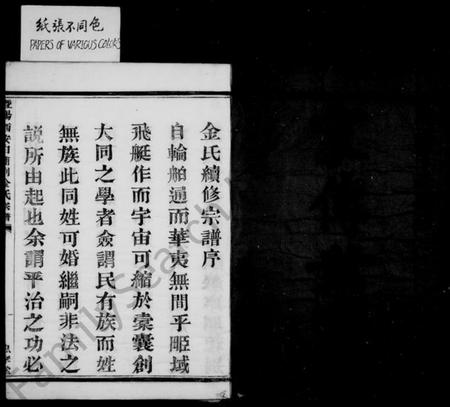 紙張不同色
PAPERS OF VARIOUS COLORS
金氏續修宗譜序
自輪舶通而華夷無間乎畛域
飛艇作而宇宙可縮於橐囊創
大同之學者僉謂民有族而姓
無族此同姓可婚繼嗣非法之
說所由起也余謂平治之功必
金氏宗譜
Family Search